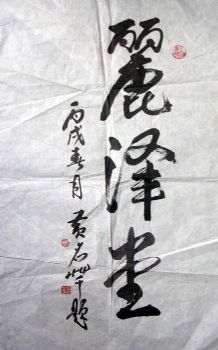 麗澤堂
丙戌春月 黃名芊題